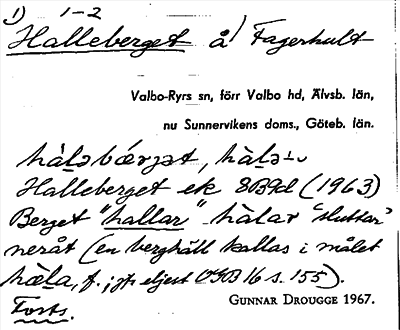 1) 1-2
Halleberget å) Fagerhult
Valbo-Ryrs sn, förr Valbo hd, Älvsb. län,
nu Sunnervikens doms., Göteb. län.
Halleberget ek 8B9d (1963)
Berget "hallar" hàlar "sluttar"
neråt (en berghäll kallas i målet
hæla, f.; jfr eljest OGB 16 s. 155).
Forts. GUNNAR DROUGGE 1967.